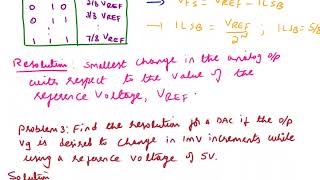 0 1 0 2/8 VREF
0 1 1 3/8 VREF
1 1 1 7/8 VREF
→ VFS = VREF - 1LSB
→ 1LSB = VREF / 2^N ; 1LSB = 5/8
Resolution: smallest change in the analog o/p
with respect to the value of the
reference voltage, VREF.
Problem 3: Find the resolution for a DAC if the o/p
Vg is desired to change in 1mV increments while
using a reference voltage of 5V.
Solution